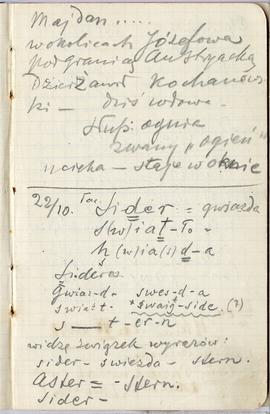 Majdan .....
w okolicach Józefowa
pod granicą Austryacką
Dzierżawił Kochanows
ki - dziś wdowa.
słup ognia
zwany "ogień"
ucieka - staje w oknie
22/10. Sider = gwiazda
s(w)iat-to -
h(w)ia(s)d-a
Sideres
Gwias-d- swes-d-a
swiat- *swaig-side. (?)
s t-er-n
widzę związek wyrazów:
sider - swiezda - stern.
Aster = -stern.
sider -